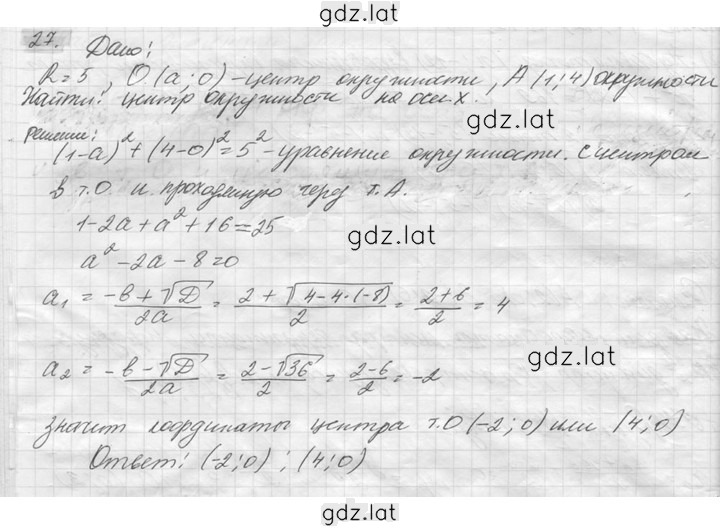 gdz.lat
27. Дано:
R=5, O(a;0)-центр окружности, A(1;4) окружности
Найти: центр окружности на оси x.
Решение:
(1-a)²+(4-0)²=5²-уравнение окружности. с центром
в т.О и проходящую через т.А.
1-2a+a²+16=25
gdz.lat
a²-2a-8=0
a₁ = (-b+√D)/2a = (2+√(4-4·(-8)))/2 = (2+6)/2 = 4
gdz.lat
a₂ = (-b-√D)/2a = (2-√36)/2 = (2-6)/2 = -2
значит координаты центра т.О (-2;0) или (4;0)
Ответ: (-2;0); (4;0)
gdz.lat